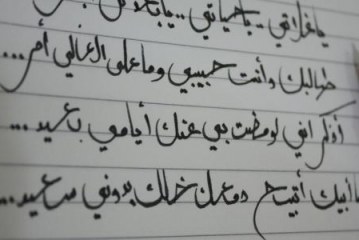 ياغلاتي .. ياحياتي .. يابعد
طالبك وأنت حبيبي وما على الغالي أمر ...
اذكر اني لو مضت بي عنك أيامي بعيد ...
ما أبيك أتبيح دمعك خلك بدوني سعيد ...